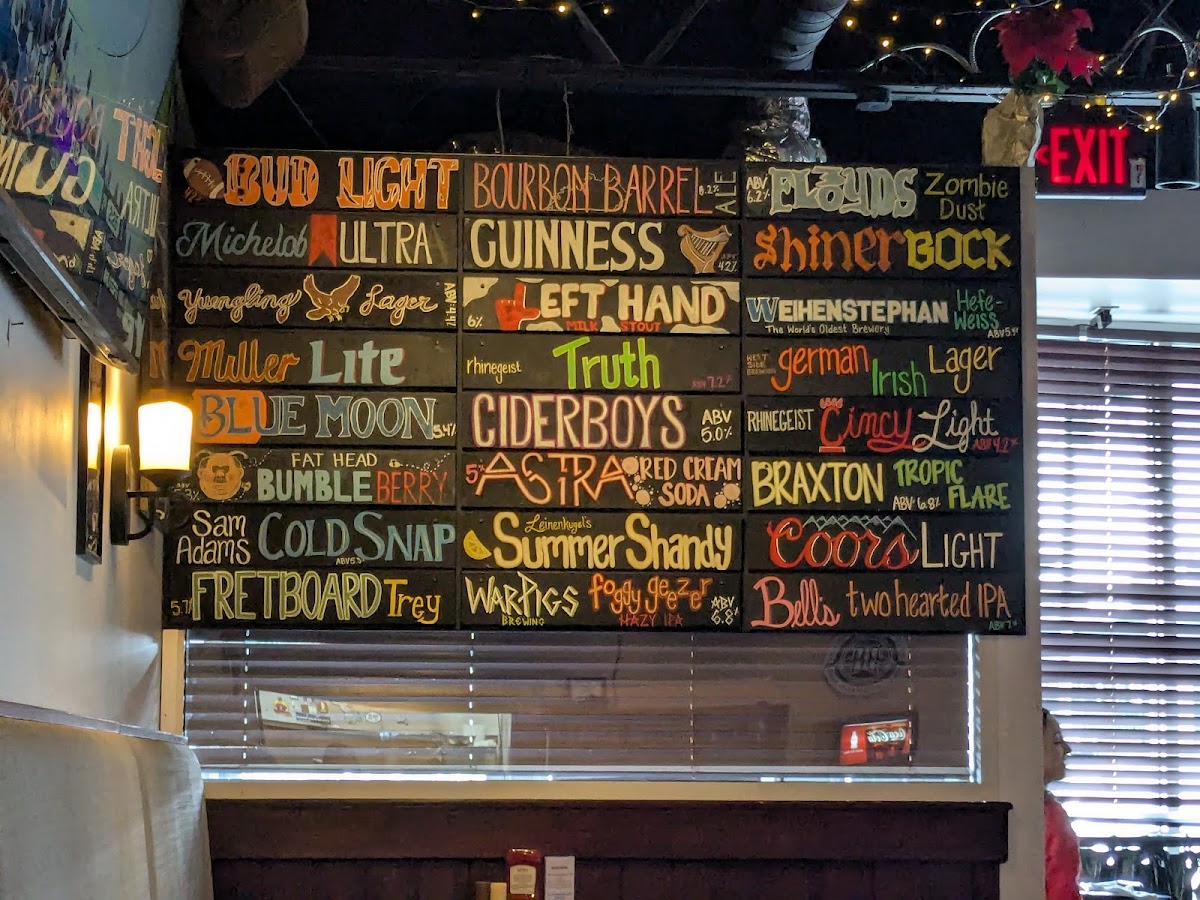 BUD LIGHT
Michelob ULTRA
Yuengling Lager
Miller Lite
BLUE MOON 5.4%
FAT HEAD
BUMBLE BERRY
Sam Adams COLD SNAP
5.7% FRETBOARD Trey
BOURBON BARREL ALE 8.2%
GUINNESS
ABV 4.2%
6% LEFT HAND
MILK STOUT
rhinegeist Truth ABV 7.2%
CIDERBOYS ABV 5.0%
5% ASTRA RED CREAM SODA
Leinenkugel's
Summer Shandy
WARPIGS foggy geezer ABV 6.8%
BREWING HAZY IPA
ABV 6.2% FLOYDS Zombie Dust
Shiner BOCK
WEIHENSTEPHAN Hefe-Weiss
The World's Oldest Brewery
WEST SIDE BREWING german Irish Lager
RHINEGEIST Cincy Light ABV 4.2%
BRAXTON TROPIC FLARE
ABV 6.8%
Coors LIGHT
Bell's two hearted IPA
ABV 7%
EXIT